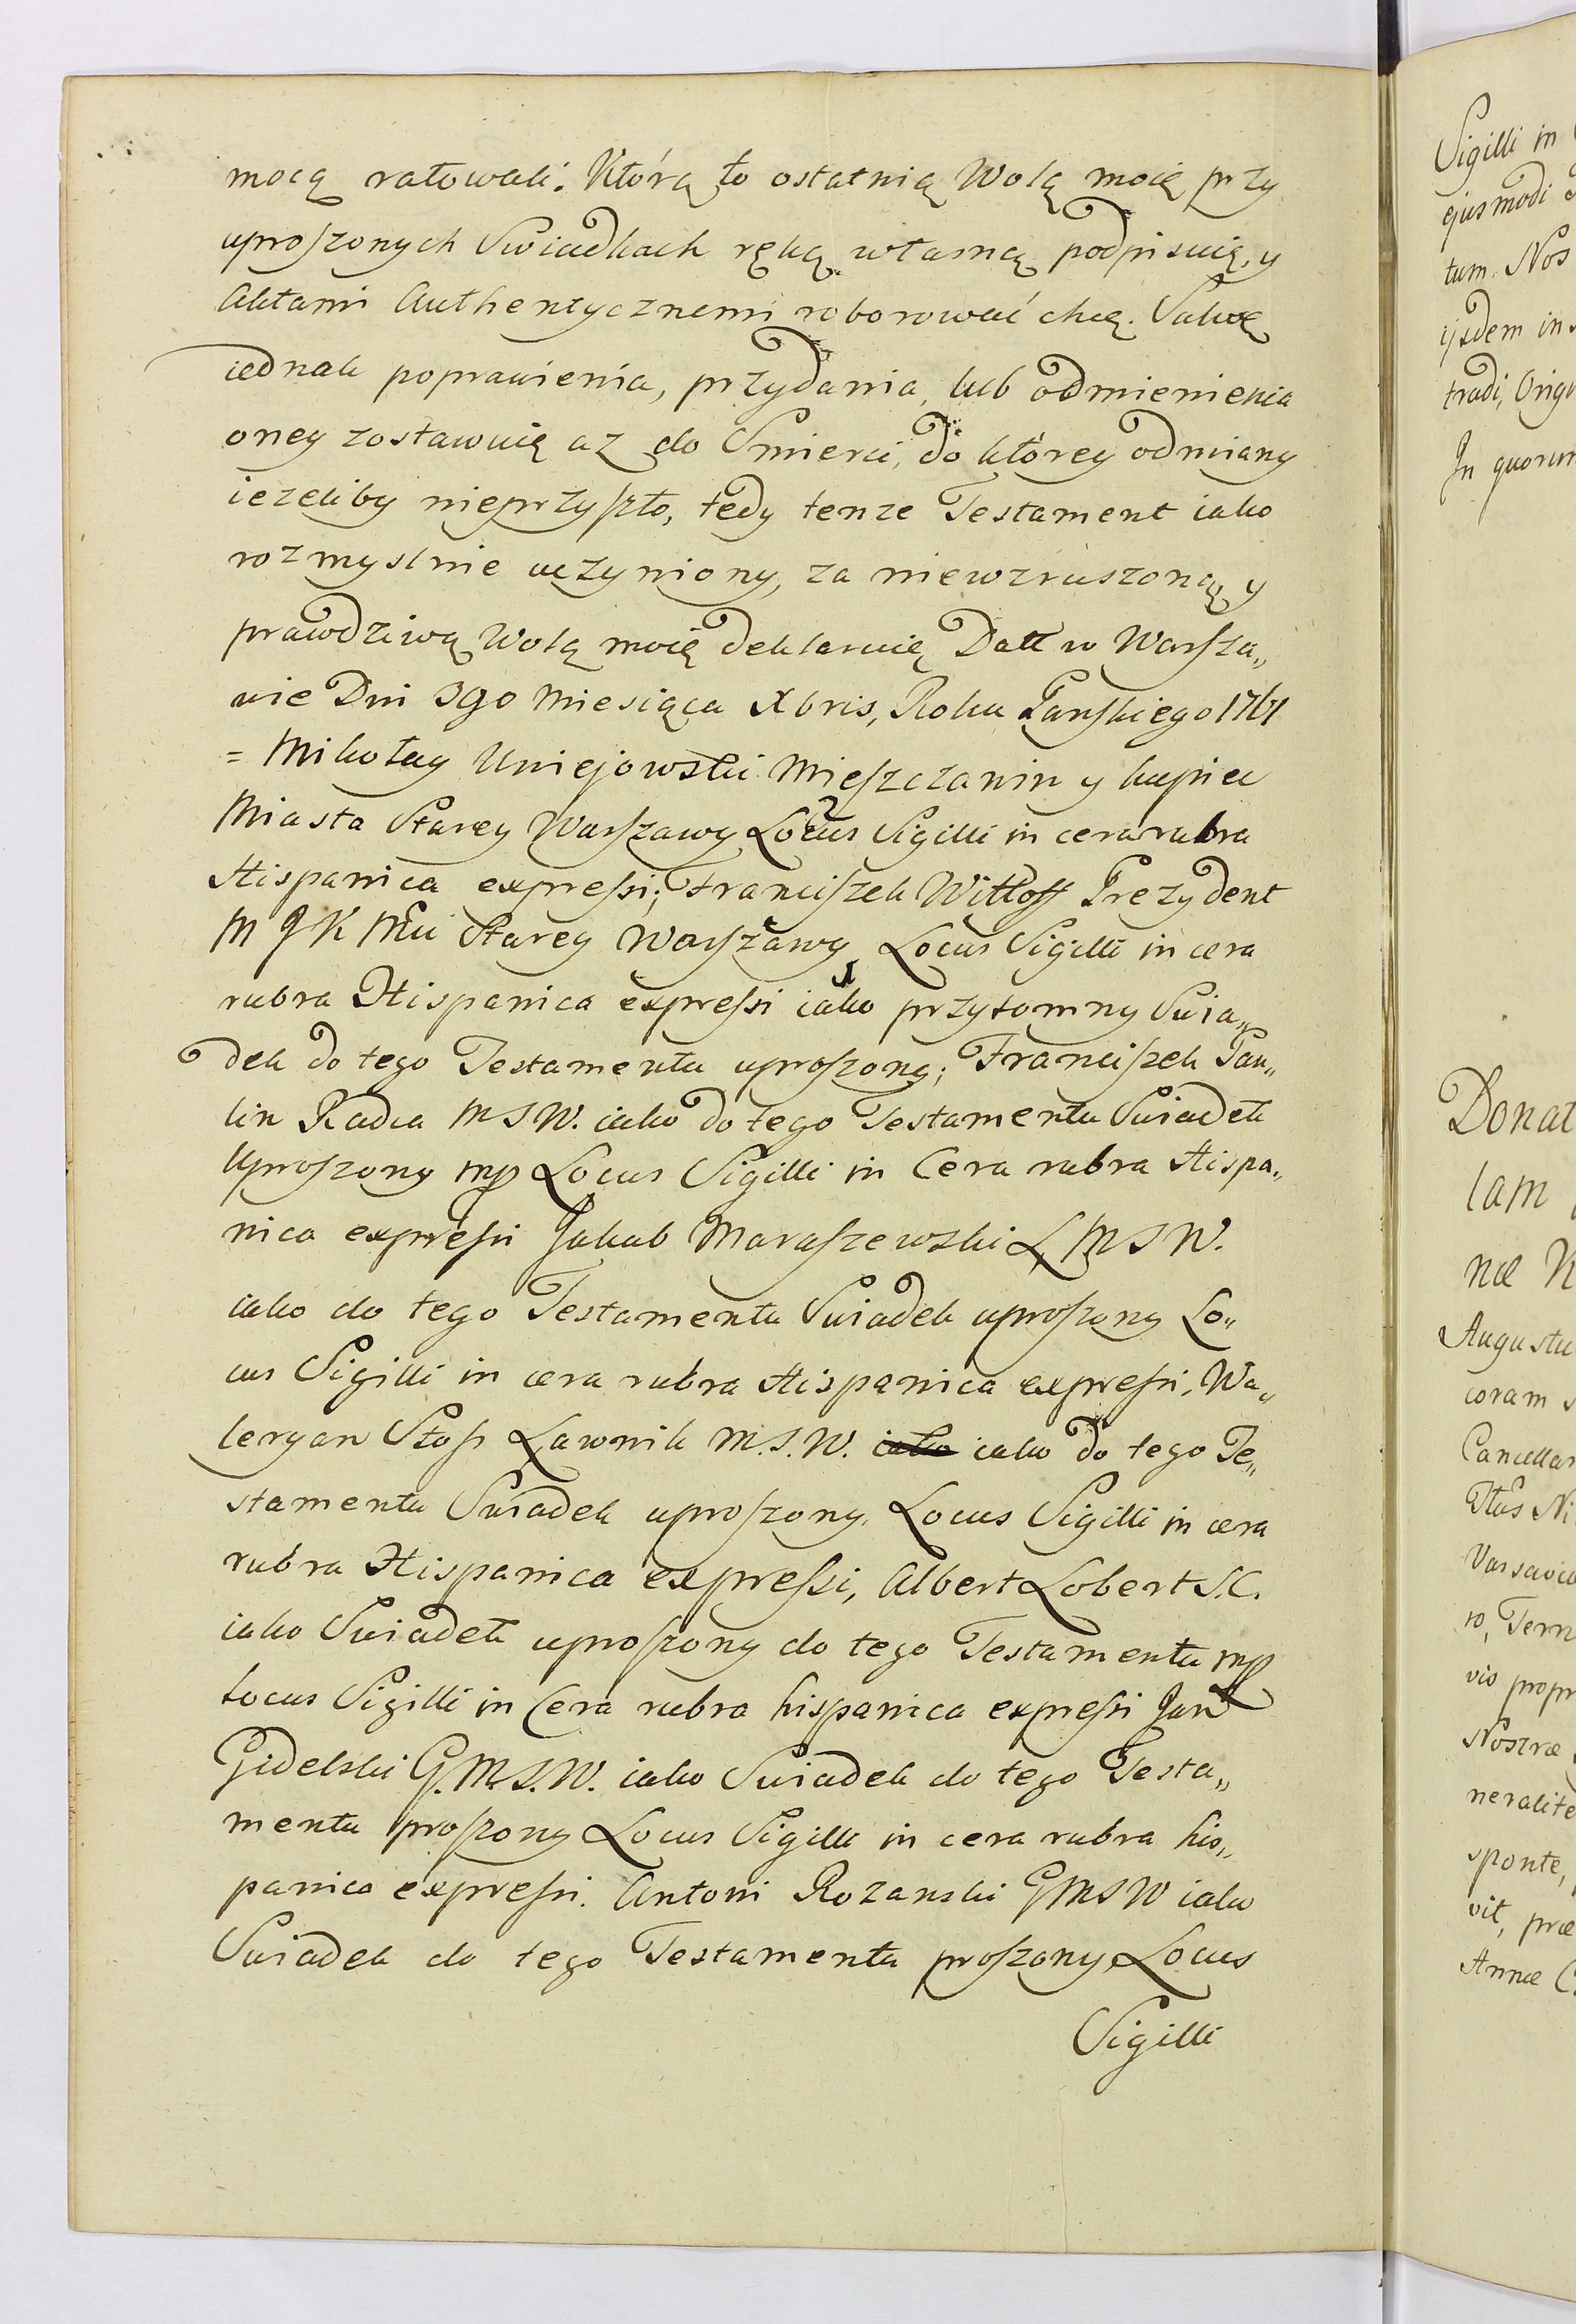 mocą ratowali. Którą to ostatnią Wolą moię przy
uproszonych Swiadkach ręką własną podpisuię, y
Aktami Authentycznemi roborować chcę. Salwę
iednak poprawienia, przydania, lub odmienienia
oney zostawuię az do Smierci, do którey odmiany
iezeliby nieprzyszło, tedy tenze Testament iako
rozmyslnie uczyniony, za niewzruszoną y
prawdziwą Wolą moię deklaruię Datt w Warsza„
wie Dni 3go Miesiąca Xbris, Roku Pańskiego 1761
= Mikołay Uniejowski Mieszczanin y kupiec
Miasta Starey Warszawy Locus Sigilli in cera rubra
Hispanica expressi; Franciszek Wittoff Prezydent
M J K Mci Starey Warszawy Locus Sigilli in cera
rubra Hispanica expressi iako przytomny Swia„
dek do tego Testamentu uproszony; Franciszek Pau„
lin Radca M S W. iako do tego Testamentu Swiadek
Uproszony mp Locus Sigilli in Cera rubra Hispa„
nica expressi Jakub Maraszewski Ł M S W.
iako do tego Testamentu Swiadek uproszony Lo„
cus Sigilli in cera rubra Hispanica expressi, Wa„
leryan Stoss Ławnik M.S.W. iako iako do tego Te„
stamentu Swiadek uproszony, Locus Sigilli in cera
rubra Hispanica expressi, Albert Lobert S.C.
iako Swiadek uproszony do tego Testamentu mp
Locus Sigilli in Cera rubra hispanica expressi Jan
Gidelski G.M.S.W. iako Swiadek do tego Testa„
mentu proszony Locus Sigilli in cera rubra his„
panica expressi. Antoni Rozanski G M S W iako
Swiadek do tego Testamentu proszony Locus
Sigilli
Sigilli in
ejusmodi
tum. Nos
ijsdem in
tradi, Orig
In quorum
Donat
lam
næ
Augustu
coram
Cancellar
Varsavia
ro, Term
vis propr
Nostræ
neralite
sponte,
vit, præ
Annæ